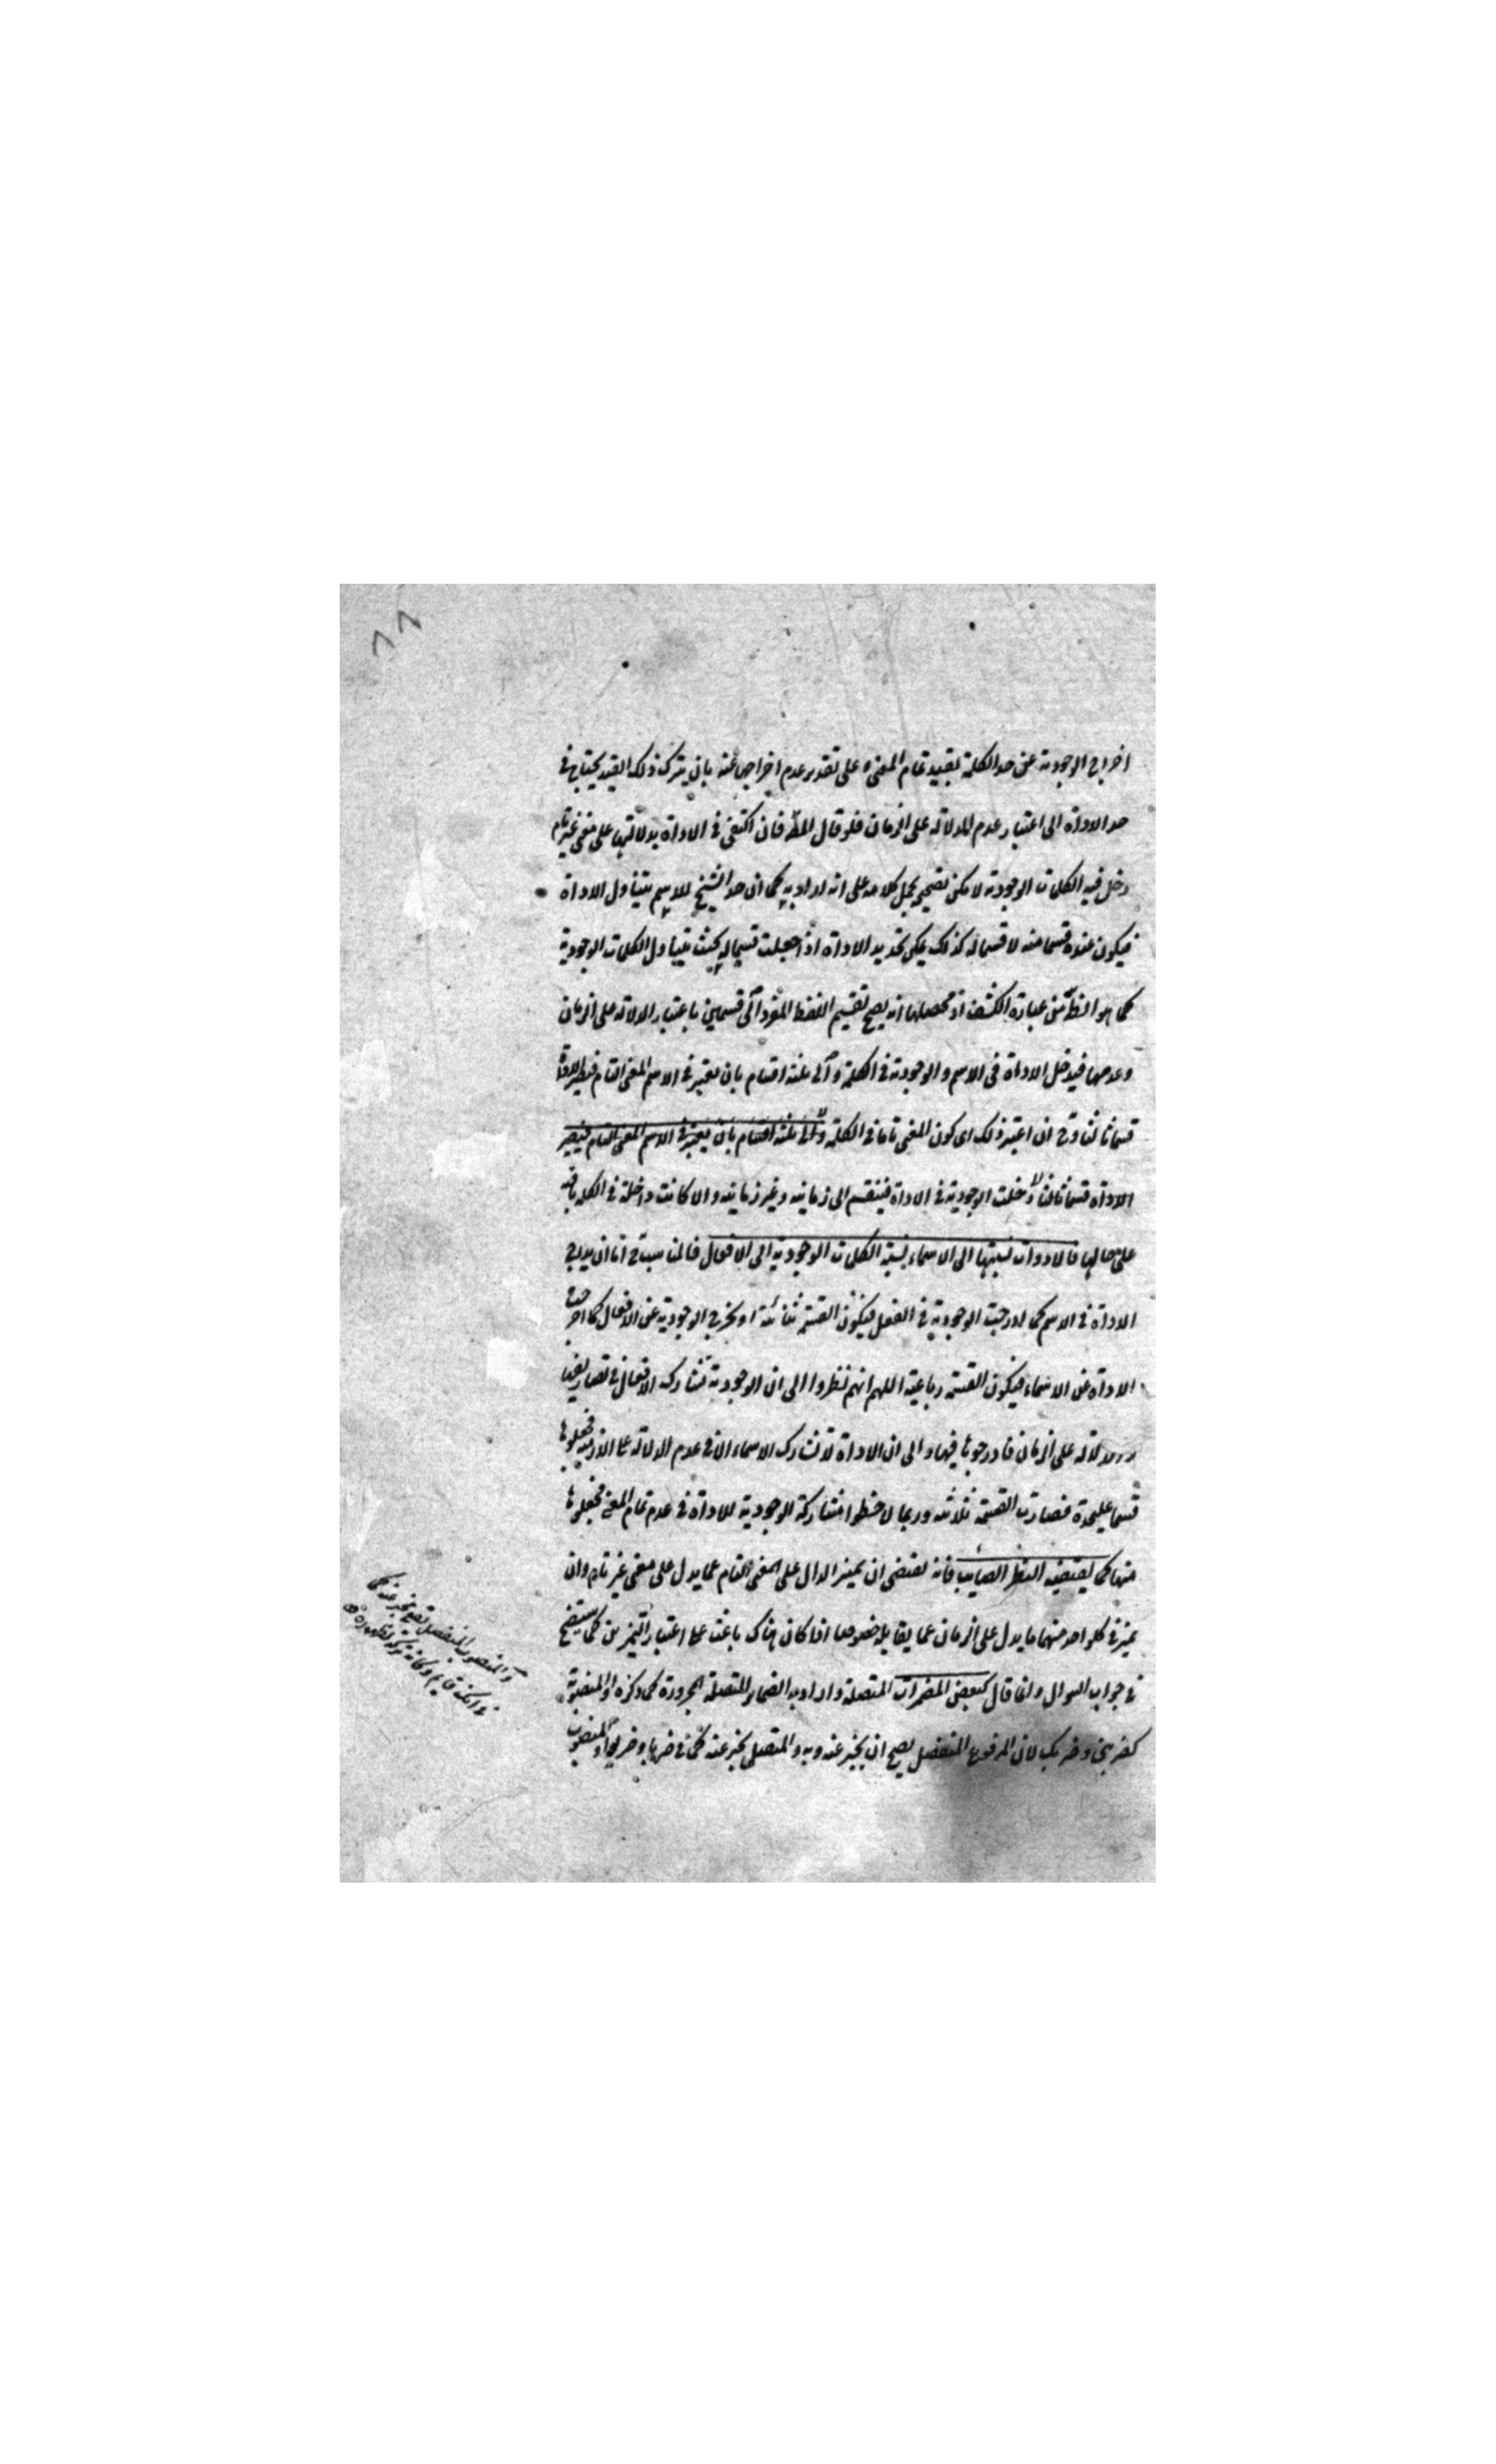 اخراج الوجودية عن حد الكلمة بقييد تمام المعنى وعلى تقدير عدم اخراجها عنه بان يترك ذلك القيد يحتاج في
حد الاداة الى اعتبار عدم الدلالة على الزمان فلو قال المط فان اكتفى في الاداة بدلالتها على معنى غير تام
دخل فيه الكلمات الوجودية لامكن تصحيحه بحمل كلامه على انه اراد به كما ان حد الشيخ للاسم يتناول الاداة
فيكون عنده قسما منه لا قسما له كذلك يمكن تحديد الاداة اذا جعلت قسيما له بحيث يتناول الكلمات الوجودية
كما هو الظ من عبارة الكشف اذ محصلها انه يصح تقسيم اللفظ المفرد الى قسمين باعتبار الدلالة على الزمان
وعدمها فيدخل الاداة في الاسم والوجودية في الكلمة والى ثلثة اقسام بان يعتبر في الاسم المعنى التام فيصير الاداة
قسما ثالثا وح ان اعتبر ذلك اى كون المعنى تاما في الكلمة والى ثلثة اقسام بان يعتبر في الاسم المعنى التام فيصير
الاداة قسما ثالثا دخلت الوجودية في الاداة فينقسم الى زمانية وغير زمانية والا كانت داخلة في الكلمة باقية
على حالها فالادوات نسبتها الى الاسماء نسبة الكلمات الوجودية الى الافعال فالمناسب ح اما ان يدرج
الاداة في الاسم كما ادرجت الوجودية في الفعل فيكون القسمة ثنائية او يخرج الوجودية عن الافعال كما اخرجت
الاداة عن الاسماء فيكون القسمة رباعية اللهم انهم نظروا الى ان الوجودية تشارك الافعال في تصاريفها
والدلالة على الزمان فادرجوها فيها والى ان الاداة لا تشارك الاسماء الا في عدم الدلالة على الازمنة فجعلوها
قسما عليحدة فصارت القسمة ثلاثية وربما لاحظوا مشاركة الوجودية للاداة في عدم تمام المعنى فجعلوها
منها كما يقتضيه النظر الصايب فانه يقتضى ان يميز الدال على المعنى التام عما يدل على معنى غير تام وان
يميز في كلواحد منهما ما يدل على الزمان عما يقابله خصوصا اذا كان هناك باعث على اعتبار التميزين كما سيتضح
في جواب السوال وانما قال كبعض المضمرات المتصلة واراد به الضمائر المتصلة المجرورة كما ذكره او المنصوبة
كضربنى وضربك لان المرفوع المنفصل يصح ان يخبر عنه وبه والمتصل يخبر عنه كما في ضربا وضربوا والمنصوب
والمنصوب المنفصل يصح يخبر عنه كما